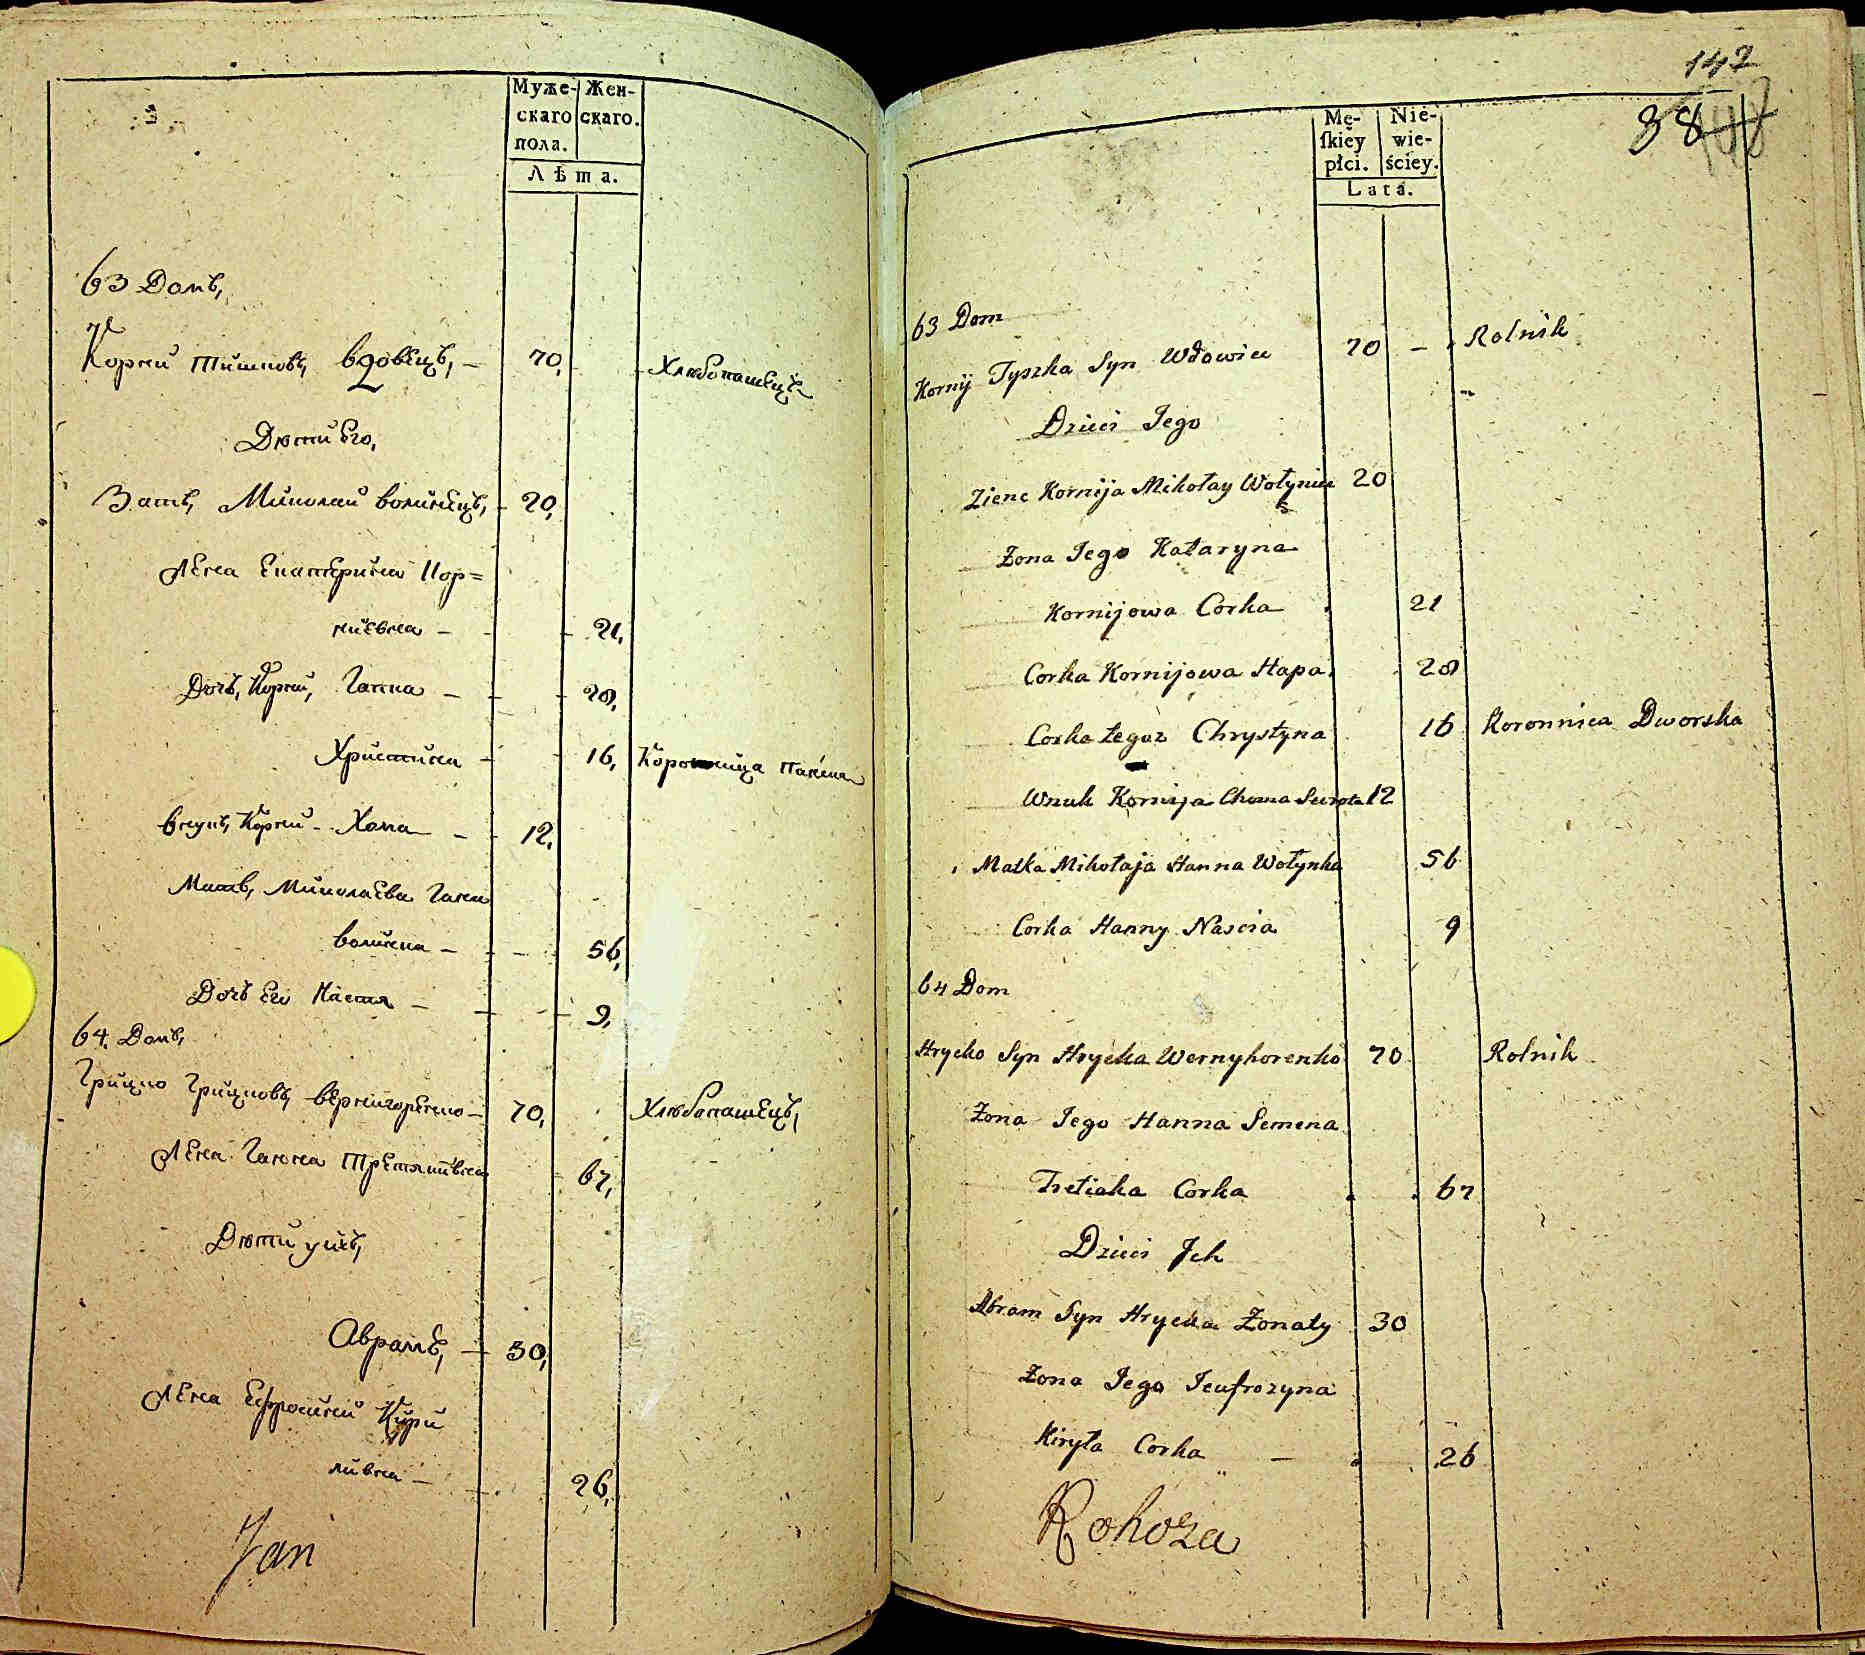 Муже- Жен-
скаго скаго.
пола.
Лѣта.
63 Домъ,
Корний Тишковъ, вдовецъ, — 70, Хлѣбопашецъ
Дѣти Его,
Зать, Миколай волинецъ, - 20,
Жена Екатерина Кор=
ниевна - 21,
Дочь, Корни, Гапка — 28,
Христина - 16, Коровница
внукъ, Корни - Хома — 12,
Мать, Миколаева Ганна
волинка — 56,
Дочь Его Настя — 9,
64. Домъ,
Грицко Грицковъ, вернигоренко — 70, Хлѣбопашецъ,
Жена Ганна Третяковна 67,
Дѣти уихъ,
Аврамъ, — 30,
Жена Ефросиния Кири
ливна — 26,
Jan
147
38
Mę- Nie-
ſkiey wie-
płci. ściey.
Lata.
63 Dom
Kornij Tyszka Syn Wdowiec 70 — Rolnik
Dzieci Jego
Zienc Kornija Mikołay Wołyniec 20
Żona Jego Kataryna
Kornijowa Corka 21
Corka Kornijowa Hapa 28
Corka tegoz Chrystyna 16 Koronnica Dworska
Wnuk Kornija Choma Sierota 12
Matka Mikołaja Hanna Wołynka 56
Corka Hanny Nascia 9
64 Dom
Hrycko Syn Hrycka Wernyhorenko 70 Rolnik
Żona Jego Hanna Semena
Tretiaka Corka 67
Dzieci Jch
Abram Syn Hrycka Żonaty 30
Żona Jego Jeufrozyna
Kiryła Corka — 26
Rohoza